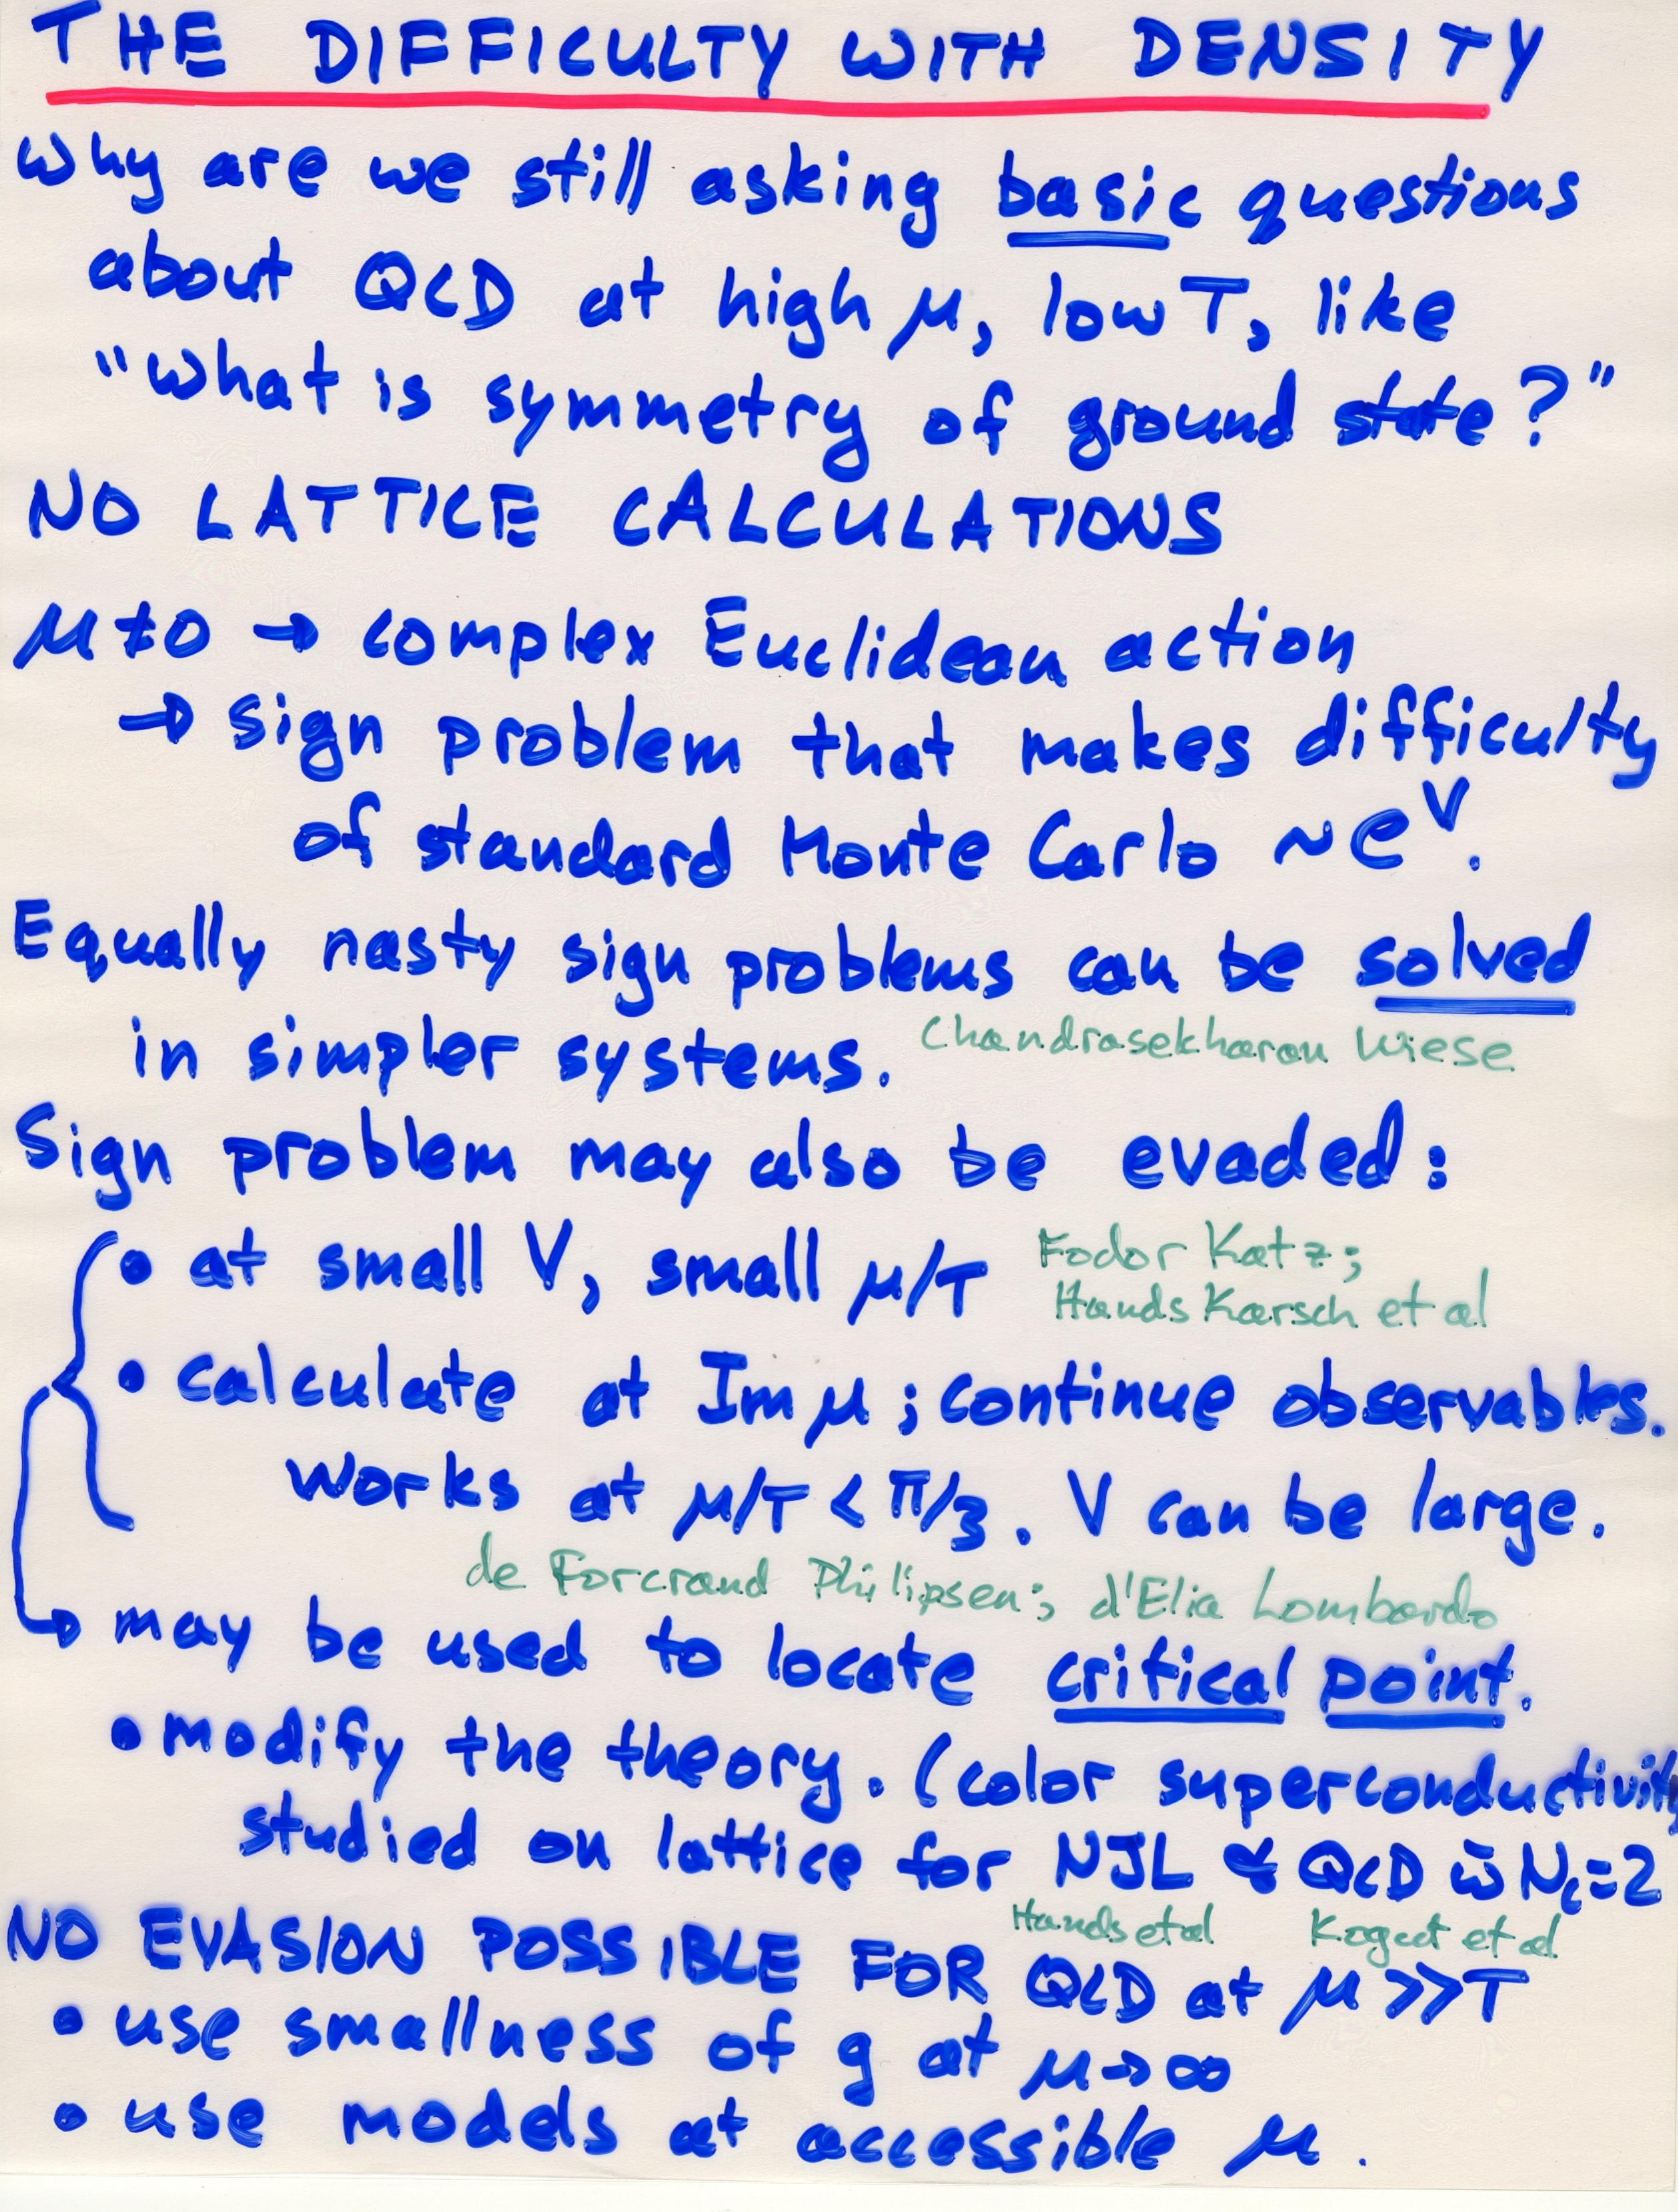 THE DIFFICULTY WITH DENSITY
Why are we still asking basic questions
about QCD at high μ, low T, like
"What is symmetry of ground state?"
NO LATTICE CALCULATIONS
μ≠0 → complex Euclidean action
→ sign problem that makes difficulty
of standard Monte Carlo ~e^V.
Equally nasty sign problems can be solved
in simpler systems. Chandrasekharan Wiese
Sign problem may also be evaded:
• at small V, small μ/T Fodor Katz;
Hands Karsch et al
• calculate at Im μ; continue observables.
Works at μ/T < π/3. V can be large.
de Forcrand Philipsen; d'Elia Lombardo
→ may be used to locate critical point.
• modify the theory. (color superconductivity
studied on lattice for NJL & QCD w̄ Nc=2
Hands et al Kogut et al
NO EVASION POSSIBLE FOR QCD at μ>>T
• use smallness of g at μ→∞
• use models at accessible μ.